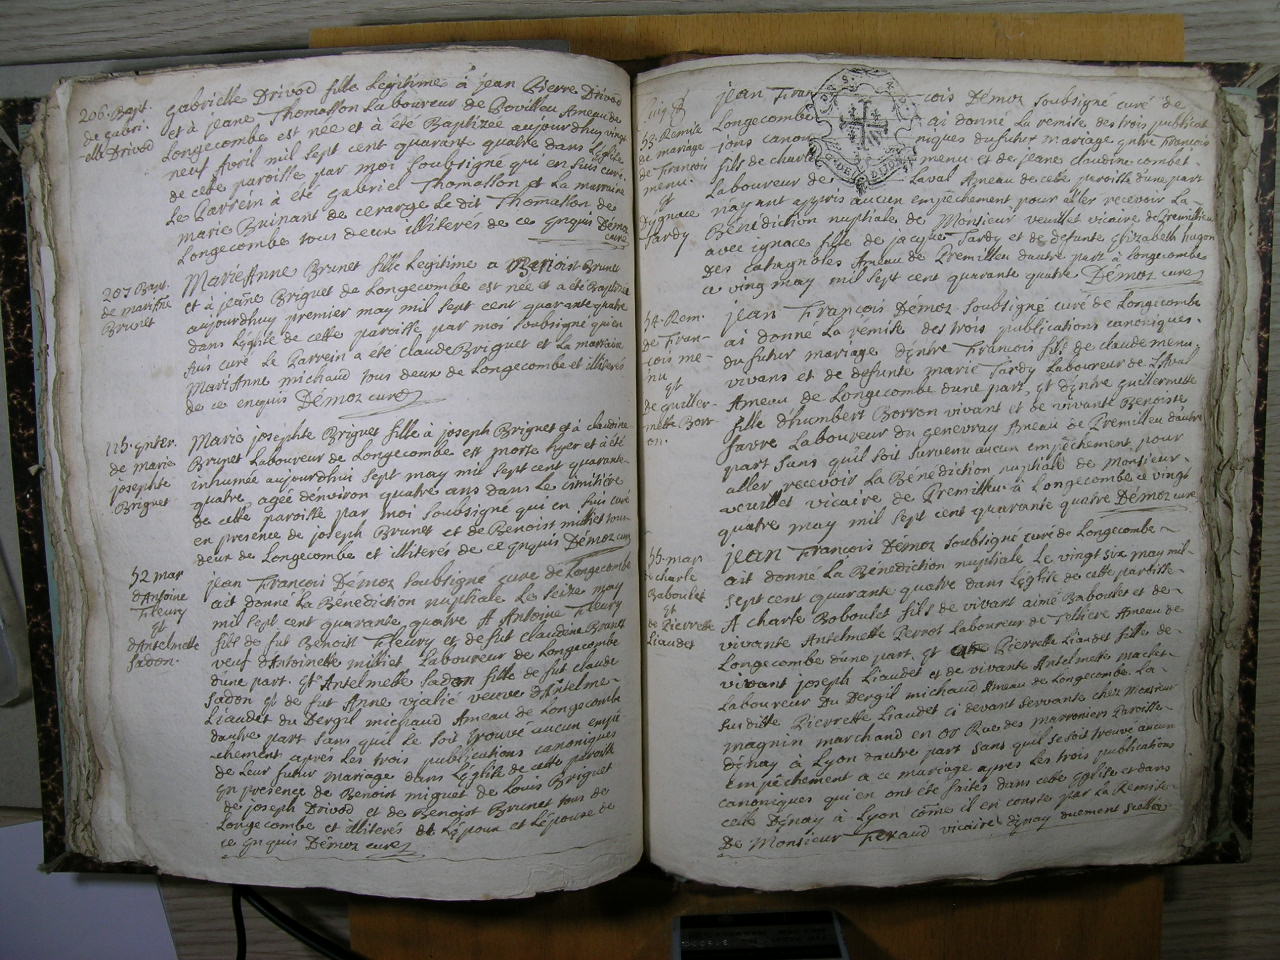 206. Bapt.
de Gabri-
-elle Drivod
Gabrielle Drivod fille Legitime à jean Pierre Drivod
et à jeane Thomasson Laboureur de Rovilleu Ameau de
Longecombe est née et à été Baptizée aujourdhuy vingt
neuf Avril mil sept cent quarante quatre dans L'Eglise
de cette paroisse par moi soubsigné qui en suis curé.
Le Parrein à été Gabriel Thomasson et La marraine
Marie Buinant de cerarge Le dit Thomasson de
Longecombe tous deux illiterés de ce Enquis Démoz
curé
207 Bapt.
de mariane
Brunet
MarieAnne Brunet fille Legitime a Benoist Brunet
et à jeane Briguet de Longecombe est née et a été Baptizée
aujourdhuy premier may mil sept cent quarante quatre
dans L'Eglise de cette paroisse par moi soubsigné qui en
suis curé Le Parrein a été claude Briguet et La marraine
MarieAnne michaud tous deux de Longecombe et illiterés
de ce enquis Démoz curé
115. Enter.
de marie
josephte
Briguet
Marie josephte Briguet fille à joseph Briguet et à claudine
Brunet Laboureur de Longecombe est morte hyer et à été
inhumée aujourdhui sept may mil sept cent quarante-
quatre agée denviron quatre ans dans Le cimitière
de cette paroisse par moi soubsigné qui en suis curé
en presence de joseph Brunet et de Benoist milliet tous
deux de Longecombe et illiterés de ce Enquis Démoz curé
52 mar
d'Antoine
Fleury
Et
d'Antelmette
Sadon.
jean François Démoz soubsigné curé de Longecombe
ait donné La Bénédiction nuptiale Le seize may
mil sept cent quarante quatre A Antoine Fleury
fils de fut Benoist Fleury et de fut claudine Brunet
veuf d'Antoinette milliet Laboureur de Longecombe
dune part. Et Antelmette Sadon fille de fut claude
Sadon Et de fut Anne vialié veuve d'Antelme-
Liaudet du Dergil michaud Ameau de Longecombe
dautre part sans quil se soit trouvé aucun empé
-chement après Les trois publications canoniques
de Leur futur mariage dans L'Eglise de cette paroisse
En présence de Benoist miguet de Louis Briguet
de joseph Drivod et de Benoist Brunet tous de
Longecombe et illiterés de L'époux et L'épouse de
ce Enquis Démoz curé
53. Remise
de mariage
de François
menu.
Et
D'ygnace
Tardy
jean Fran cois Démoz soubsigné curé de
Longecombe ai donné La remise des trois publicat
ions canon niques du futur mariage Entre François
fils de charle menu et de jeane claudine combet.
Laboureur de Laval Ameau de cette paroisse dune part
nayant appris aucun empéchement pour aller recevoir La-
Bénédiction nuptiale de Monsieur veuillet vicaire de Premillieu
avec ignace fille de jacque Tardy et de defunte Elizabeth hugon
des catagnoles Ameau de Premilleu dautre part à longecombe
ce vingt may mil sept cent quarante quatre Démoz curé
54. Rem.
de Fran-
cois me-
nu
Et
de Guiller-
mette Borr
on.
jean François Démoz soubsigné curé de Longecombe
ai donné La remise des trois publications canoniques.
du futur mariage d'Entre François fils de claude menu.
vivans et de defunte marie Tardy Laboureur de L'hval
Ameau de Longecombe dune part, Et d'Entre Guillermette
fille d'humbert Borron vivant et de vivante Benoiste
favre Laboureur du Genevray Ameau de Premilleu dautre
part sans quil soit survenu aucun empéchement pour
aller recevoir La Bénédiction nuptiale de Monsieur-
veuillet vicaire de Premilleu à Longecombe ce vingt
quatre may mil sept cent quarante quatre Démoz curé
55. mar
charle
Baboulet
Et
de Pierrette
Liaudet
jean François Démoz soubsigné curé de Longecombe
ait donné La Bénédiction nuptiale Le vingt six may mil-
sept cent quarante quatre dans L'Eglise de cette paroisse-
A charle Boboulet fils de vivant aimé Baboulet et de-
vivante Antelmette Perrot Laboureur de Ameau de
Longecombe dune part. Et Pierrette Liaudet fille de-
vivant joseph Liaudet et de vivante Antelmette
Laboureur Du Dergil michaud Ameau de Longecombe. La-
sus ditte Pierrette Liaudet ci devant servante chez Monsieur
magnin marchand en Rue des marroniers Paroisse-
D'Enay à Lyon dautre part sans quil se soit trouvé aucun
Empéchement a ce mariage apres Les trois publications
canoniques qui en ont été faites dans cette Eglise et dans
celle D'Enay à Lyon come il en conste par La Remise-
De Monsieur Feraud vicaire d'Enay duement scellée